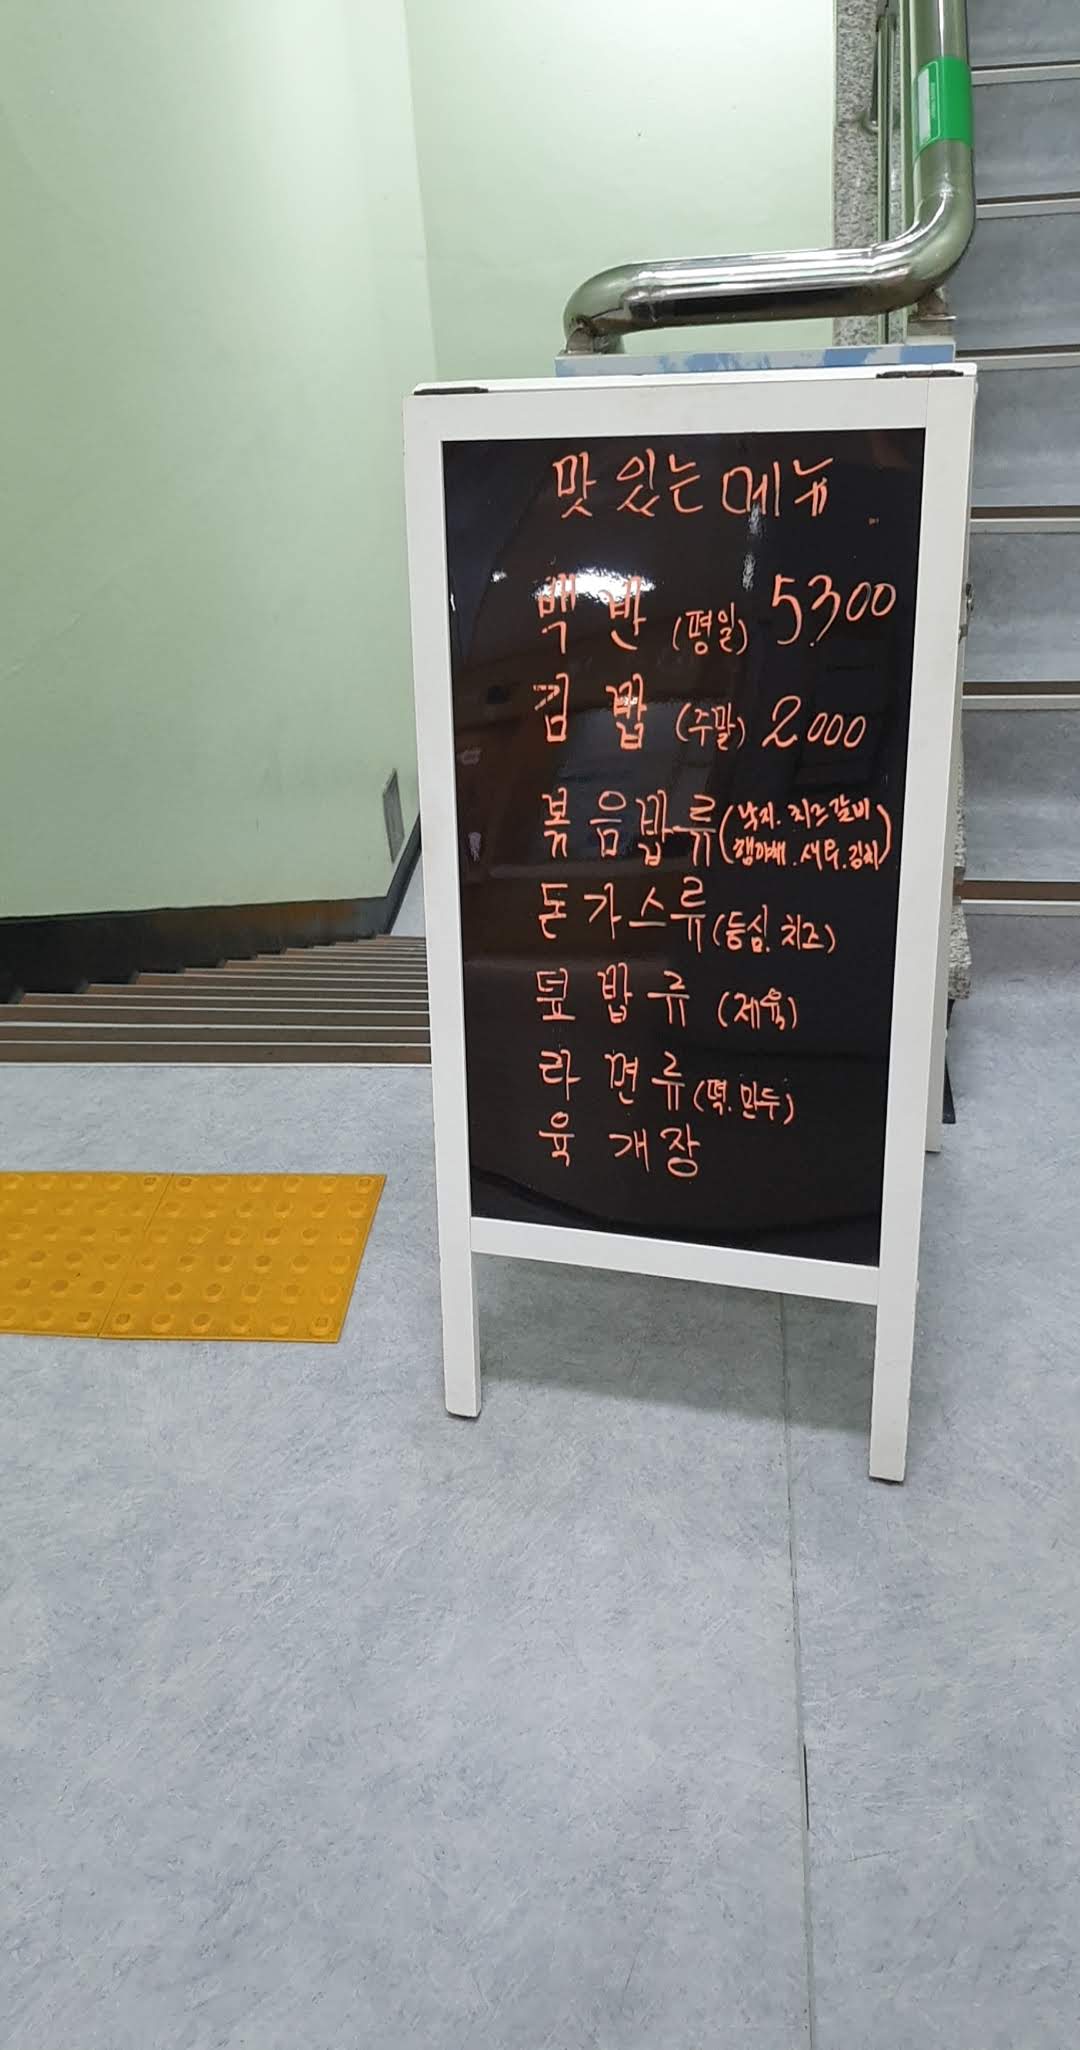 맛있는메뉴
백반 (평일) 5300
김밥 (주말) 2000
볶음밥류(낙지.치즈갈비
햄야채.새우.김치)
돈가스류(등심.치즈)
덮밥류 (제육)
라면류(떡.만두)
육개장